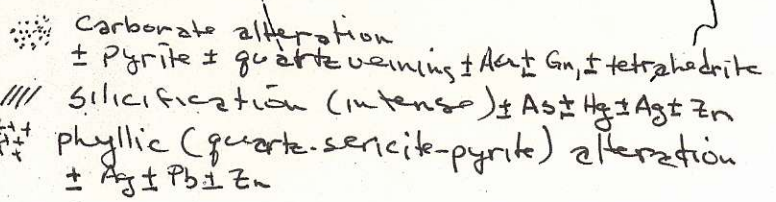 Carbonate alteration
± Pyrite ± quartz veining ± Au ± Gn, ± tetrahedrite
silicification (intense) ± As ± Hg ± Ag ± Zn
phyllic (quartz-sericite-pyrite) alteration
± Ag ± Pb ± Zn